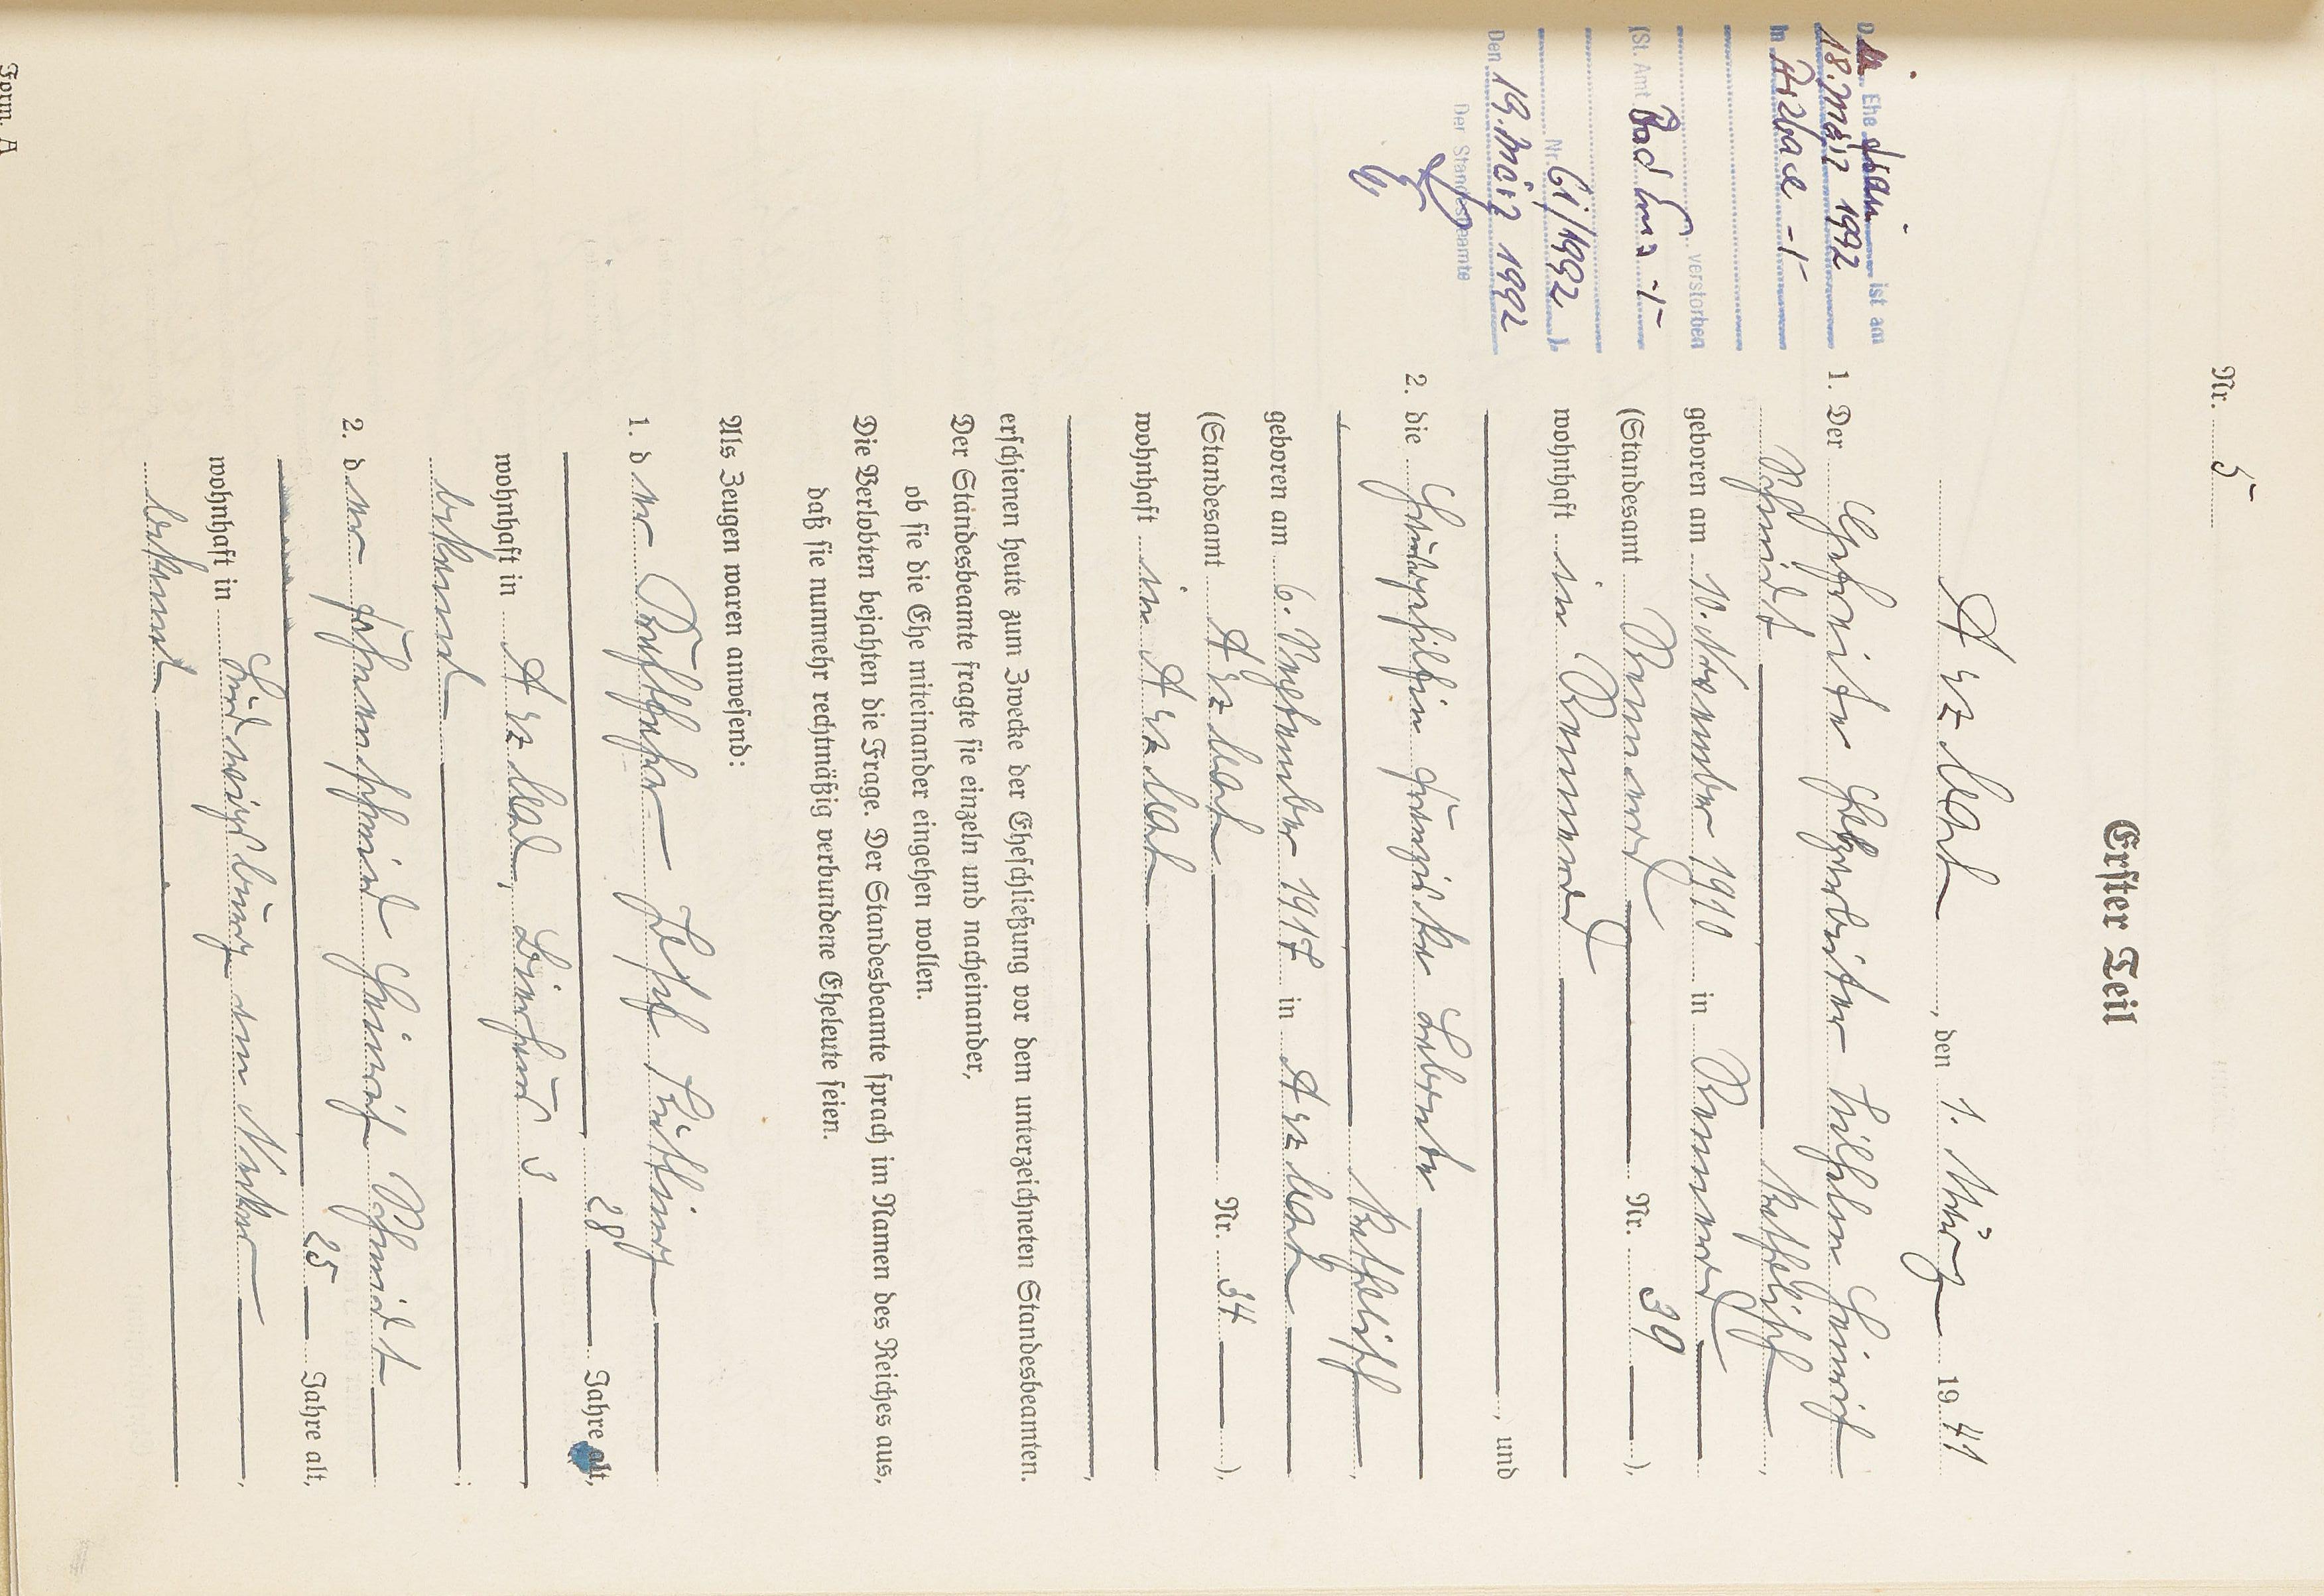 Nr. 5
Erster Teil
Arzbach, den 1. März 1941
1. Der Gefreite Gebrbeiter Wilhelm Heinrich
Schmidt katholisch,
geboren am 10. November 1910 in Bremerd
(Standesamt Nr. 39),
wohnhaft in
, und
2. die Franziska
katholisch,
geboren am 6. September 1917 in Arzbach
(Standesamt Arzbach Nr. 34),
wohnhaft in Arzbach
,
erschienen heute zum Zwecke der Eheschließung vor dem unterzeichneten Standesbeamten.
Der Standesbeamte fragte sie einzeln und nacheinander,
ob sie die Ehe miteinander eingehen wollen.
Die Verlobten bejahten die Frage. Der Standesbeamte sprach im Namen des Reiches aus,
daß sie nunmehr rechtmäßig verbundene Eheleute seien.
Als Zeugen waren anwesend:
1. der Josef
28 Jahre alt,
wohnhaft in Arzbach, 3
bekannt;
2. der Heinrich Schmidt
25 Jahre alt,
wohnhaft in Ludwigsburg am Neckar,
bekannt
Die Ehefrau ist am
18. März 1992
in Arzbach -/-
verstorben
(St. Amt Bad Ems -/-
Nr. 61/1992).
Den 19. März 1992
Der Standesbeamte
Form. A